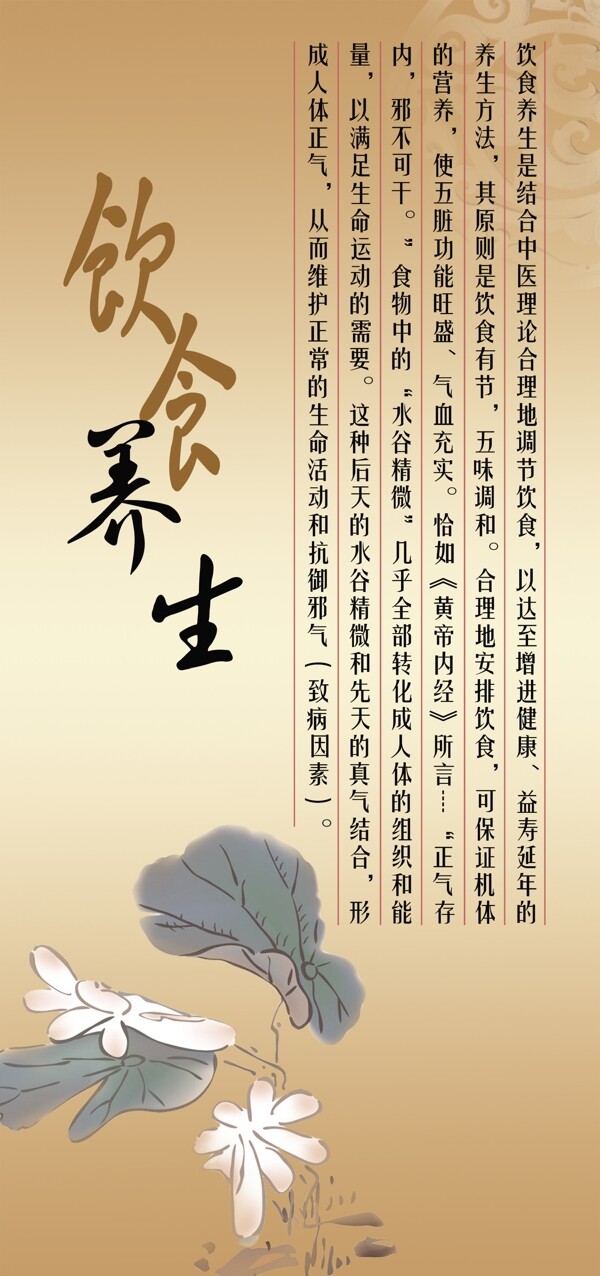 饮食养生是结合中医理论合理地调节饮食，以达至增进健康、益寿延年的
养生方法，其原则是饮食有节，五味调和。合理地安排饮食，可保证机体
的营养，使五脏功能旺盛、气血充实。恰如《黄帝内经》所言┄“正气存
内，邪不可干。”食物中的“水谷精微”几乎全部转化成人体的组织和能
量，以满足生命运动的需要。这种后天的水谷精微和先天的真气结合，形
成人体正气，从而维护正常的生命活动和抗御邪气(致病因素)。
饮食
养生